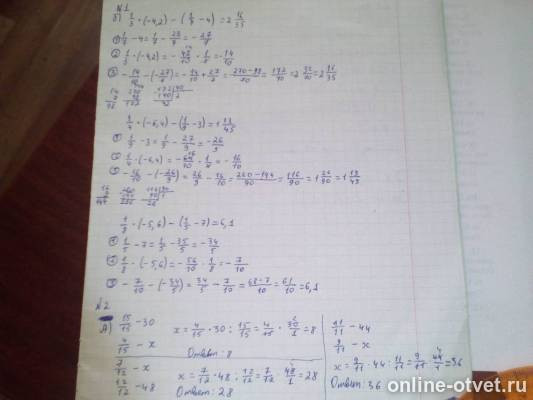 №1
б) 1/3 · (-4,2) - (1/7 - 4) = 2 16/35
① 1/7 - 4 = 1/7 - 28/7 = - 27/7
② 1/3 · (-4,2) = - 42/10 · 1/3 = - 14/10
③ - 14/10 - (- 27/7) = - 14/10 + 27/7 = 270-98/70 = 172/70 = 2 32/70 = 2 16/35
1/4 · (-6,4) - (1/9 - 3) = 1 13/45
① 1/9 - 3 = 1/9 - 27/9 = - 26/9
② 1/4 · (-6,4) = - 64/10 · 1/4 = - 16/10
③ - 16/10 - (- 26/9) = 26/9 - 16/10 = 260-144/90 = 116/90 = 1 26/90 = 1 13/45
1/8 · (-5,6) - (1/5 - 7) = 6,1
① 1/5 - 7 = 1/5 - 35/5 = - 34/5
② 1/8 · (-5,6) = - 56/10 · 1/8 = - 7/10
③ - 7/10 - (- 34/5) = 34/5 - 7/10 = 68-7/10 = 61/10 = 6,1
№2
А) 15/15 - 30
4/15 - x
x = 4/15 · 30 : 15/15 = 4/15 · 30/1 = 8
Ответ: 8
7/12 - x
12/12 - 48
x = 7/12 · 48 : 12/12 = 7/12 · 48/1 = 28
Ответ: 28
11/11 - 44
9/11 - x
x = 9/11 · 44 : 11/11 = 9/11 · 44/1 = 36
Ответ: 36
online-otvet.ru